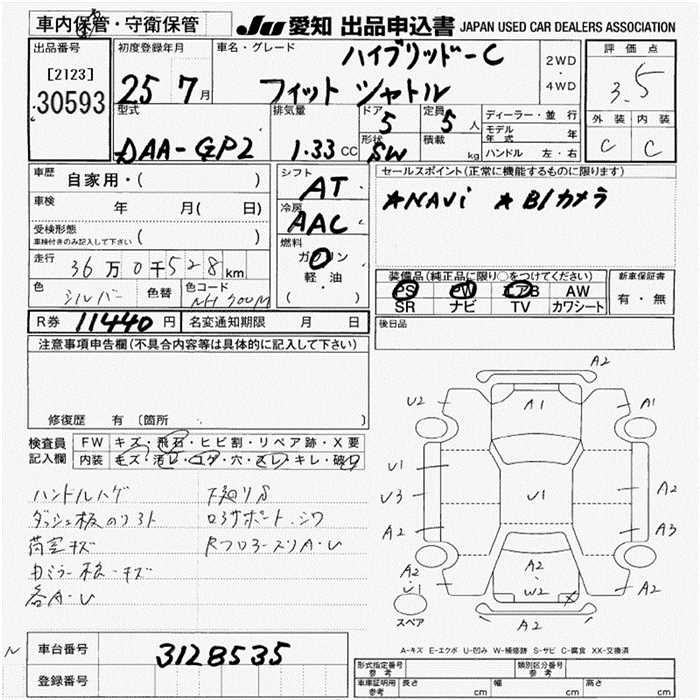 車内保管・守衛保管
JU 愛知 出品申込書 JAPAN USED CAR DEALERS ASSOCIATION
出品番号
[2123]
30593
初度登録年月
25 7月
車名・グレード
ハイブリッド-C
フィット シャトル
2WD
・
4WD
評価点
3.5
外装 内装
C C
型式
DAA-GP2
排気量
1.33 CC
ドア
5
形状
SW
定員
5 人
積載
kg
ディーラー・並行
モデル年式 年
ハンドル 左・右
車歴 自家用・( )
車検 年 月( 日)
受検形態
車検付きのみ記入して下さい ( )
走行 36万0千528km
色 シルバー 色替 色コード NH700M
シフト
AT
冷房
AAC
燃料
ガソリン
軽油
( )
セールスポイント(正常に機能するものに限ります)
★NAVi ★B/カメラ
装備品(純正品に限り○をつけてください)
PS PW エアB AW
SR ナビ TV カワシート
新車保証書
有・無
R券 11440円 名変通知期限 月 日
後日品
注意事項申告欄(不具合内容等は具体的に記入して下さい)
修復歴 有 〔箇所 〕
検査員記入欄
FW キズ・飛石・ヒビ割・リペア跡・X要
内装 キズ・汚レ・コゲ・穴・スレ・キレ・破レ
ハンドルハゲ 下廻りS
ダッシュ板のり3ト
荷室キズ
各A・U
A2
U2 A1 A1
U1 U1 A2
U3
A2 A3
A2 U1 A2・W2 A2
A2
スペア
A-キズ E-エクボ U-凹み W-補修跡 S-サビ C-腐食 XX-交換済
N
車台番号 3128535
登録番号
形式指定番号 参考 類別区分番号 参考
車車証明用 参考 長さ cm 幅 cm 高さ cm